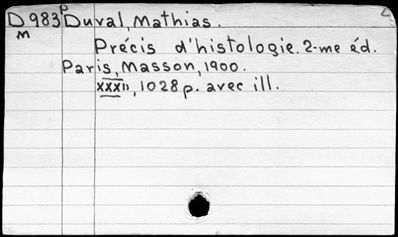 D983p Duval, Mathias. 2
M
Précis d'histologie. 2-me éd.
Paris, Masson, 1900.
xxxii, 1028 p. avec ill.